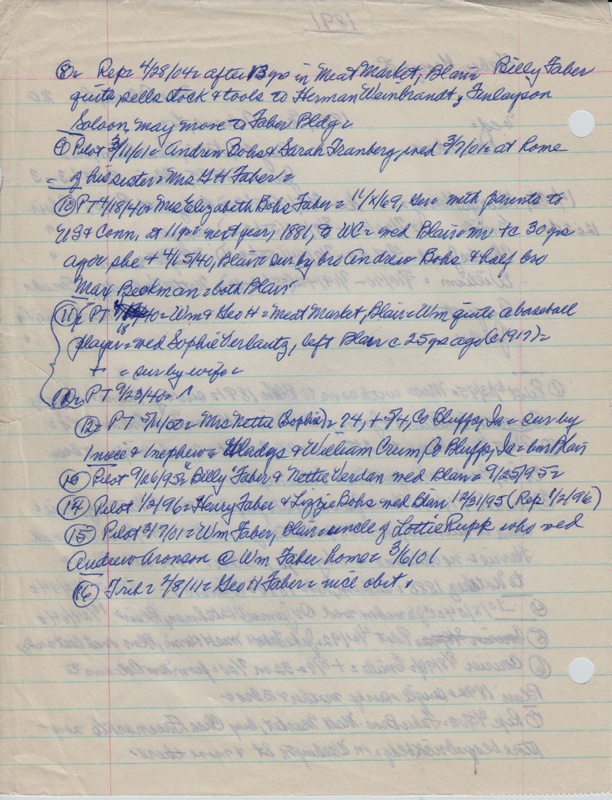 1891
(8)= Rep= 4/28/04= after 13 yrs in Meat Market, Blair= Billy Faber
quits sells stock & tools to Herman Weinbrandt, Finlayson
Saloon may move to Faber Bldg=
(9) Pilot 3/11/01= Andrew Bohs & Sarah wed 3/7/01= at home
of his sister= Mrs G H Faber=
(10) PT 4/18/40= Mrs Elizabeth Bohs Faber= 11/x/69, Ger= with parents to
US & Conn, at 11 yrs= next year, 1881, to WC= wed Blair= m + c 30 yrs
ago= she + 4/15/40, Blair= sur by bro Andrew Bohs & half bro
Max Beckman= both Blair=
(11)= PT /40= Wm & Geo H= Meat Market, Blair= Wm quite a baseball
player= wed Sophie left Blair c 25 yrs ago (c 1917)=
+ = sur by wife=
PT 9/23/40=
(12)= PT 5/1/50= Mrs Nettie (Sophia)= 74, + 5/4, Co Bluffs, Ia= sur by
1 niece & 1 nephew= Gladys & William Crum, Co Bluffs, Ia= bur Blair
(13) Pilot 9/26/95= "Billy" Faber & Nettie Verdan wed Blair= 9/25/95=
(14) Pilot 1/2/96= Henry Faber & Lizzie Bohs wed Blair 12/31/95 (Rep 1/2/96)
(15) Pilot 3/7/01= Wm Faber, Blair= uncle of Lottie Rupp who wed
Andrew Aronson @ Wm Faber home= 3/6/01
(16) Trib= 2/8/11= Geo H Faber= nice obit.